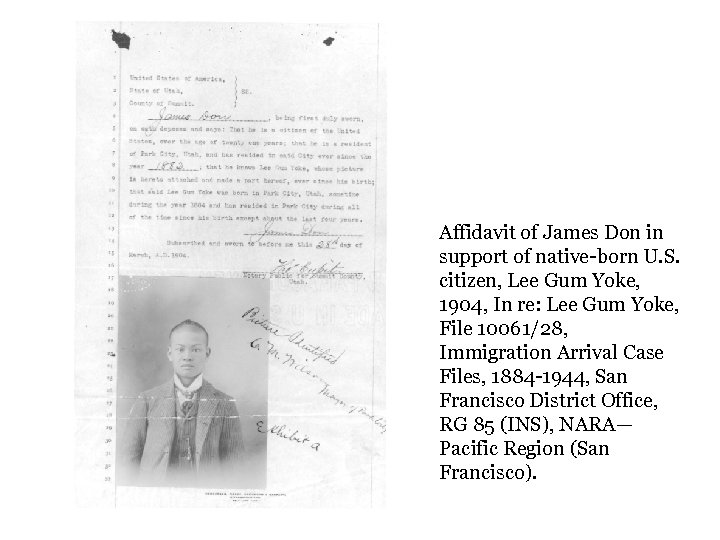 1 United States of America,
2 State of Utah, SS.
3 County of Summit.
4 James Don, being first duly sworn,
5 on oath deposes and says: That he is a citizen of the United
6 States, over the age of twenty one years; that he is a resident
7 of Park City, Utah, and has resided in said City ever since the
8 year 1882, that he knows Lee Gum Yoke, whose picture
9 is hereto attached and made a part hereof, ever since his birth;
10 that said Lee Gum Yoke was born in Park City, Utah, sometime
11 during the year 1884 and has resided in Park City during all
12 of the time since his birth except about the last four years.
13 James Don
14 Subscribed and sworn to before me this 28th day of
15 March, A.D. 1904.
16
17 Notary Public for Summit County,
18 Utah.
Picture Identified
Exhibit A
Affidavit of James Don in
support of native-born U.S.
citizen, Lee Gum Yoke,
1904, In re: Lee Gum Yoke,
File 10061/28,
Immigration Arrival Case
Files, 1884-1944, San
Francisco District Office,
RG 85 (INS), NARA—
Pacific Region (San
Francisco).